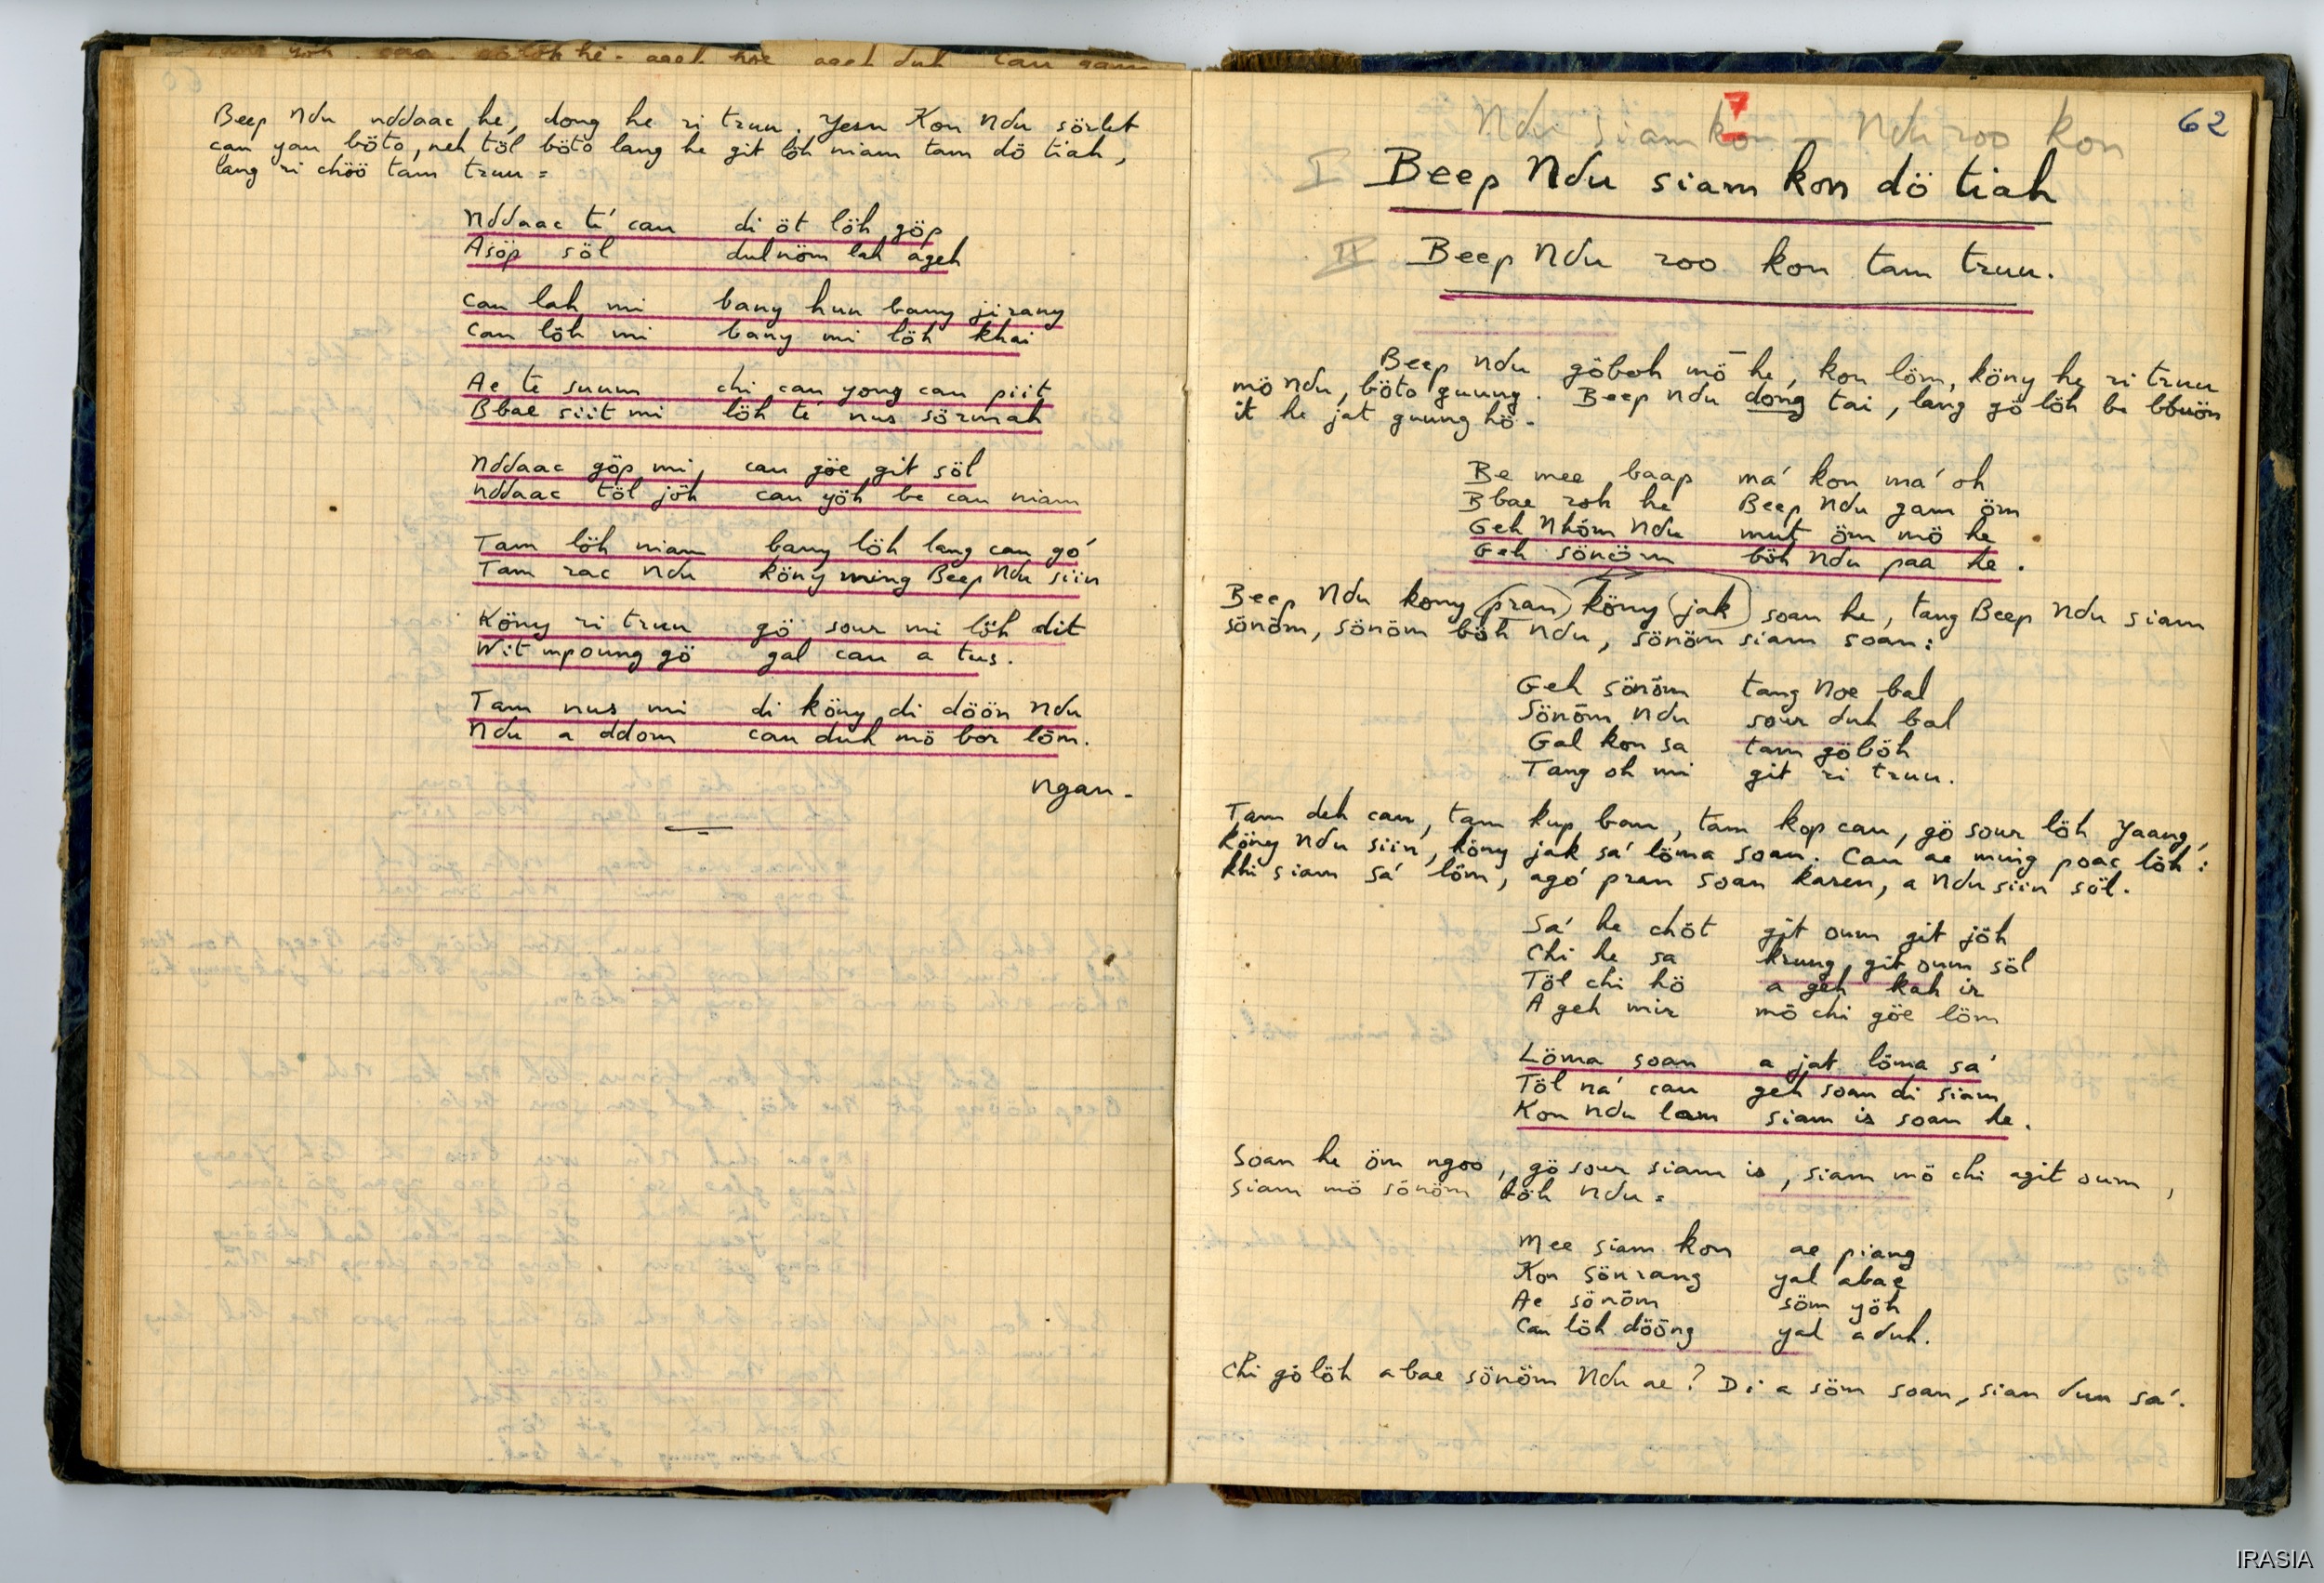 Beep Ndu nddaac he, dong he ri truu. Yesu Kon Ndu sörlet
cau yau böto, neh töl böto lang he git löh niam tam dö tiah,
lang ri chöö tam truu =
Nddaac té cau di öt löh göp
Asöp söl dulnöm lah ageh
Cau lah mi bang hun bang jirang
Cau löh mi bang mi löh khai
Ae té suum chi cau yong cau piit
Bbae siit mi löh té nus sörmah
Nddaac göp mi, cau göe git söl
Nddaac töl jöh cau yöh be cau niam
Tam löh niam bang löh lang cau gó
Tam rac Ndu köny ming Beep Ndu siin
Köny ri truu gö sour mi löh dit
Wit mpoung gö gal cau a tus.
Tam nus mi di köny di döön Ndu
Ndu a ddom cau duh mö bor löm.
ngan -
62
7
Ndu siam kon — Ndu roo kon
I Beep Ndu siam kon dö tiah
II Beep Ndu roo kon tam truu.
Beep Ndu göboh mö he, kon löm, köny he ri truu
mö Ndu, böto guung. Beep Ndu dong tai, lang gö löh be bbuön
it he jat guung hö -
Be mee baap má kon má oh
Bbae roh he Beep Ndu gam öm
Geh Nhóm Ndu mut öm mö he
Geh sönöm böh Ndu paa he.
Beep Ndu kony (pran) köny (jak) soan he, tang Beep Ndu siam
sönöm, sönöm böh Ndu, sönöm siam soan:
Geh sönöm tang Noe bal
Sönöm Ndu sour duh bal
Gal kon sa tam göböh
Tang oh mi git ri truu.
Tam deh cau, tam kup bau, tam kop cau, gö sour löh Yaang,
köny Ndu siin, köny jak sá löma soan. Cau ae ming poac löh:
khi siam sá löm, agó pran soan karen, a Ndu siin söl.
Sá he chöt git oum git jöh
Chi he sa krung git oum söl
Töl chi hö a geh kah ir
A geh mir mö chi göe löm
Löma soan a jat löma sá
Töl ná cau geh soan di siam
Kon Ndu lam siam is soan he.
Soan he öm ngoo, gö sour siam is, siam mö chi agit oum,
siam mö sönöm böh Ndu =
Mee siam kon ae piang
Kon sönrang yal abae
Ae sönöm söm yöh
Cau löh döông yal aduh.
Chi gö löh abae sönöm Ndu ae? Di a söm soan, sian dun sá.
IRASIA